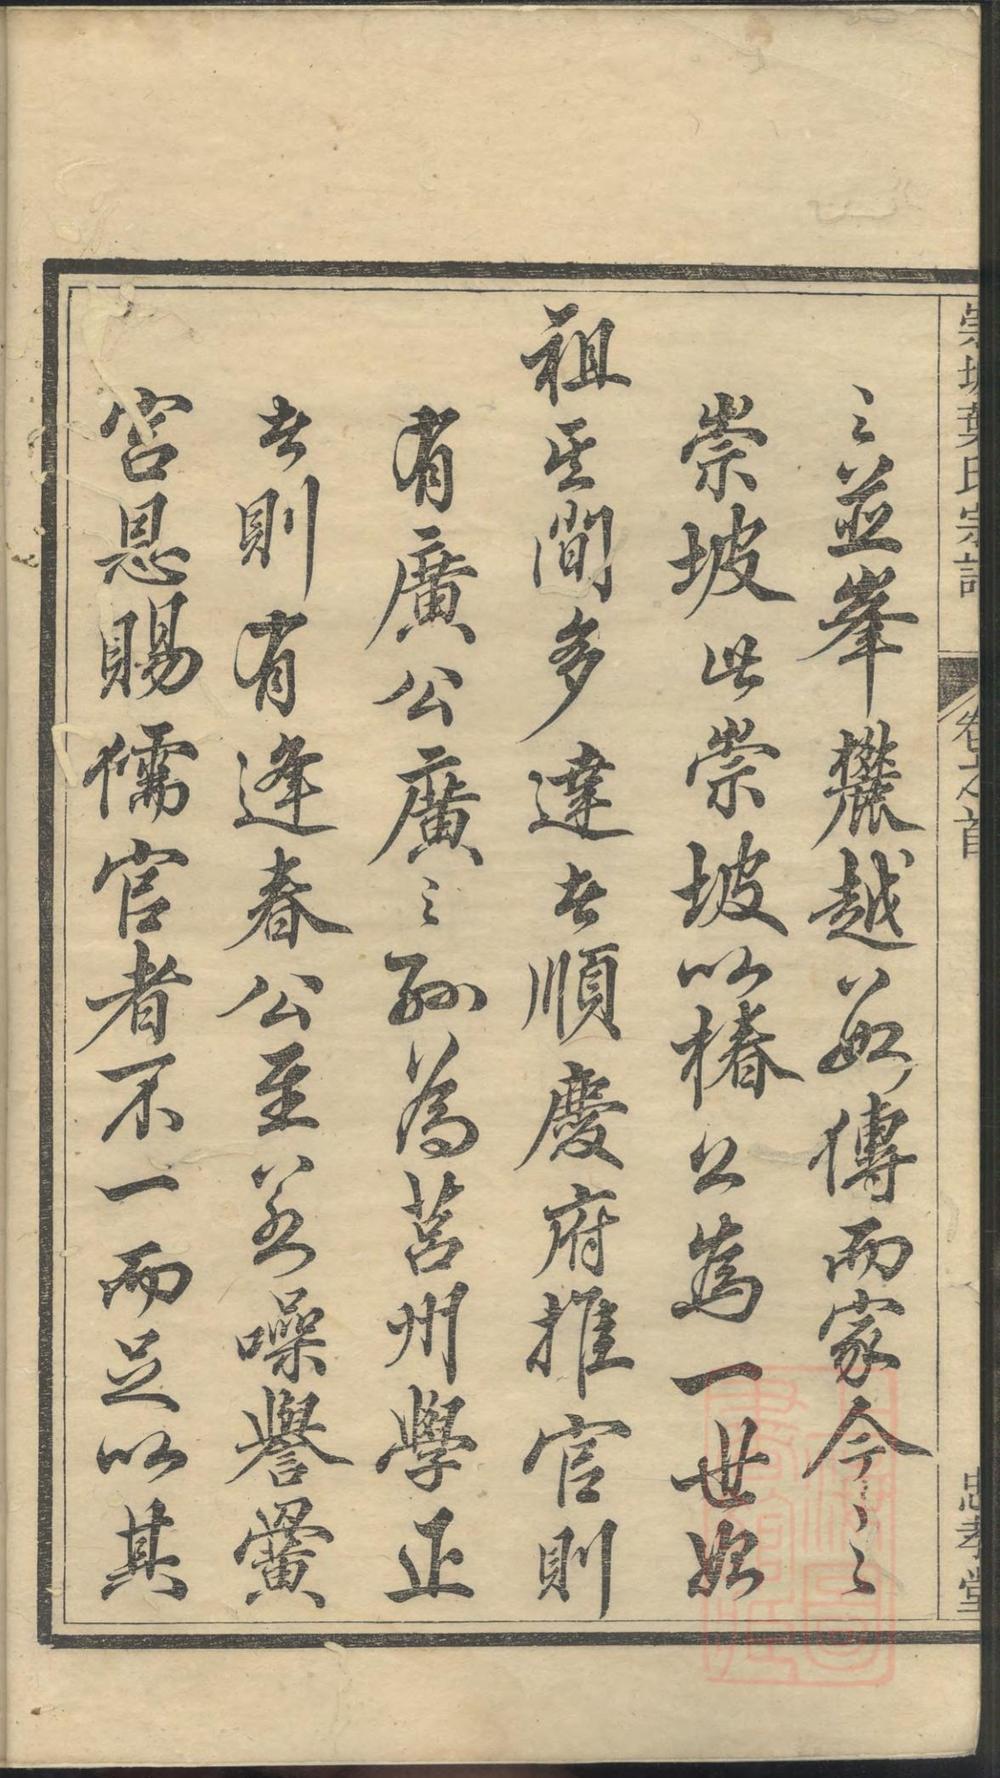 崇坡葉氏宗譜 卷之首 忠孝堂
之並峯越數傳而家今之
崇坡此崇坡以椿公為一世始
祖其間多達者順慶府推官則
有廣公廣之孫為莒州學正
者則有逢春公至若噪譽黌
宮恩賜儒官者不一而足以其